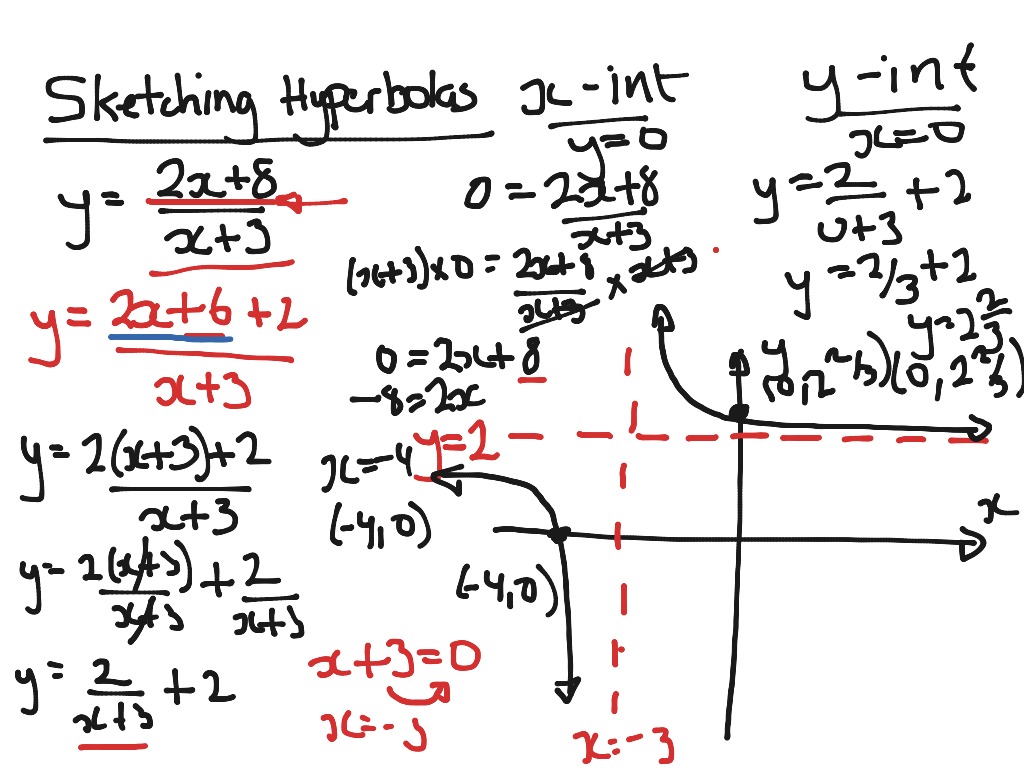 Sketching Hyperbolas
y = (2x+8)/(x+3)
y = (2x+6+2)/(x+3)
y = (2(x+3)+2)/(x+3)
y = 2(x+3)/(x+3) + 2/(x+3)
y = 2/(x+3) + 2
x+3=0
x=-3
x-int
y=0
0 = (2x+8)/(x+3)
(x+3)×0 = (2x+8)/(x+3) × x+3
0=2x+8
-8=2x
x=-4
(-4,0)
y-int
x=0
y = 2/(0+3) + 2
y = 2/3 + 2
y = 2 2/3
(0, 2 2/3)
y
(0, 2 2/3)
y=2
x
(-4,0)
x=-3